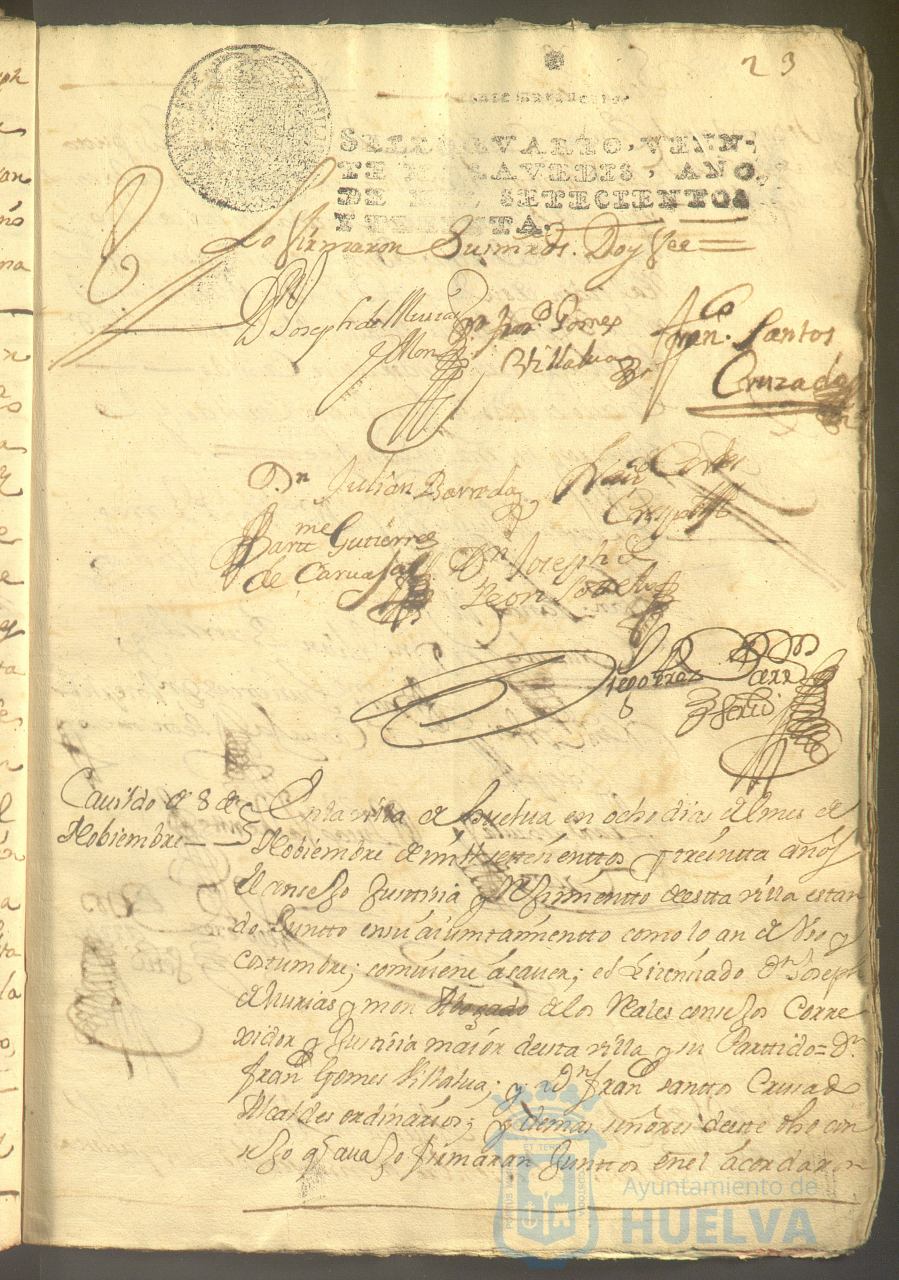 23
SELLO QVARTO, VEIN-
TE MARAVEDIS, AÑO
DE MIL SETECIENTOS
Y TREINTA.
Lo firmaron Sus mrds. Doy fee =
Dn Joseph de Murias
y Mon
Dn Franco Gomes
Villalua
Franco Santos
Cruzado
Dn Julian Barreda
Cortes
Barttme Gutierres
de Caruajal
Dn Joseph de
Leon
Diego Prez
Cauildo de 8 de
Nobiembre
En la villa de Huelua en ocho dias del mes de
Nobiembre de mill settezienttos y treintta años
el Consejo Justtisia y Rejimientto de esta villa estan-
do Juntto en su aiuntamientto como lo an de Vso y
costumbre; comuiene a sauer; el Lizenziado Dn Joseph
de Murias y mon Abogado de los Reales consejos Corre
xidor y Justisia maior desta villa y su Parttido = Dn
Franco Gomes Villalua; y Dn Franco santtos Crusado
Alcaldes ordinarios; y demas señores deste dho con
sejo q auajo firmaran Junttos en el acordaron
Ayuntamiento de
HUELVA